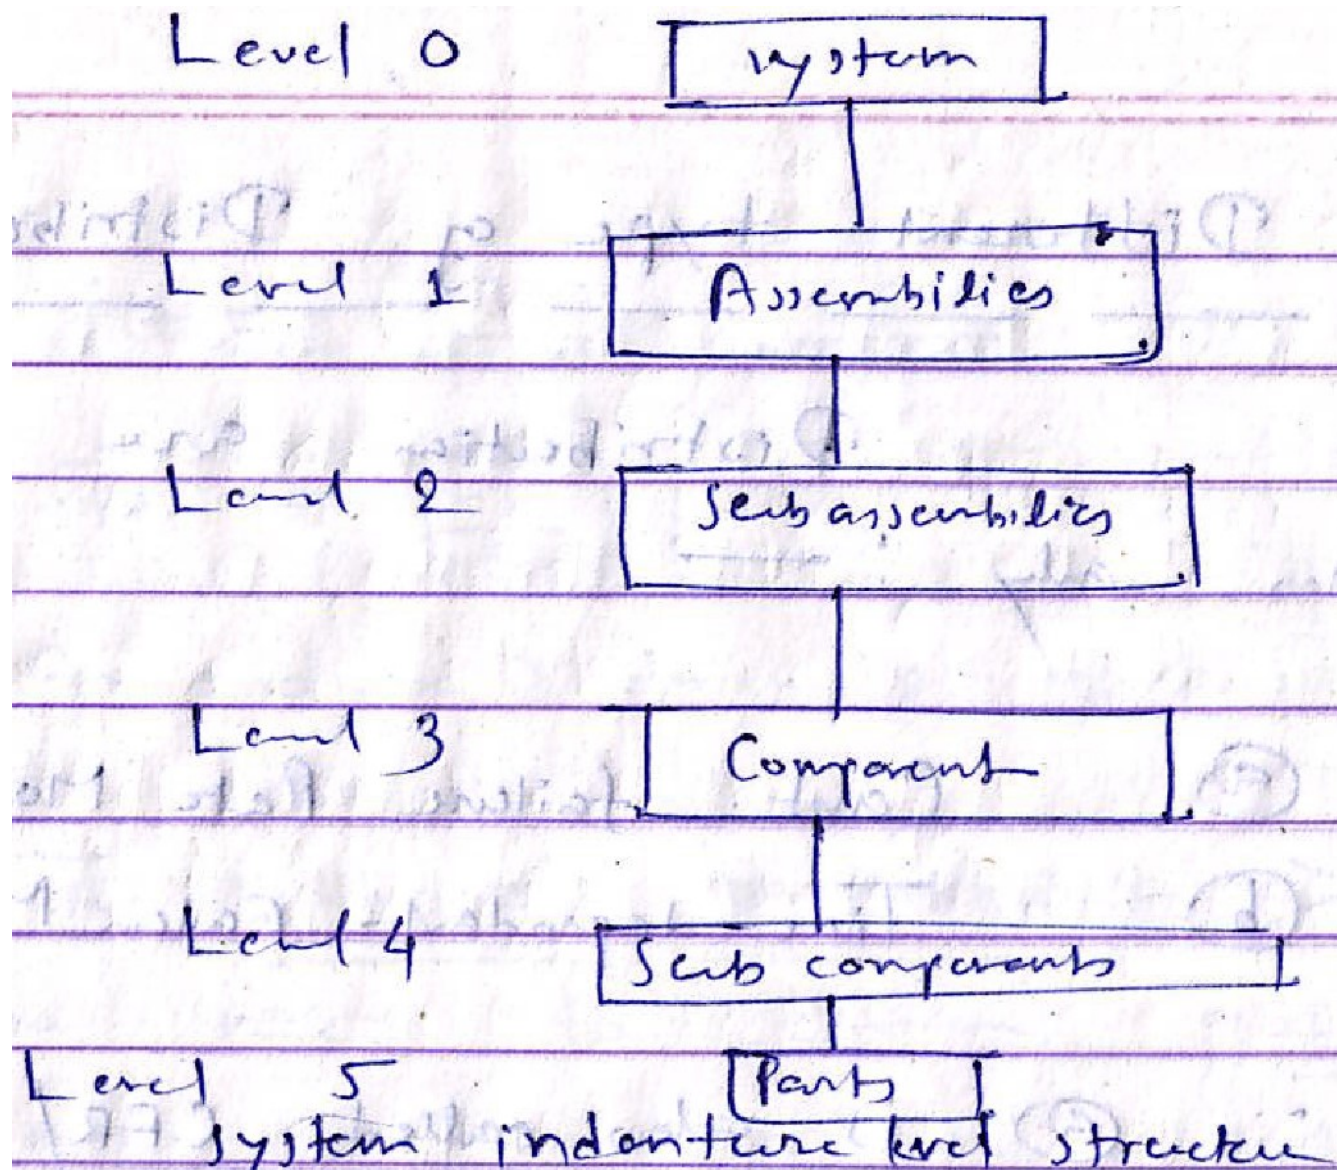 Level 0 system
Level 1 Assembilies
Level 2 Sub assembilies
Level 3 Component
Level 4 Sub components
Level 5 Parts
system indenture level structure